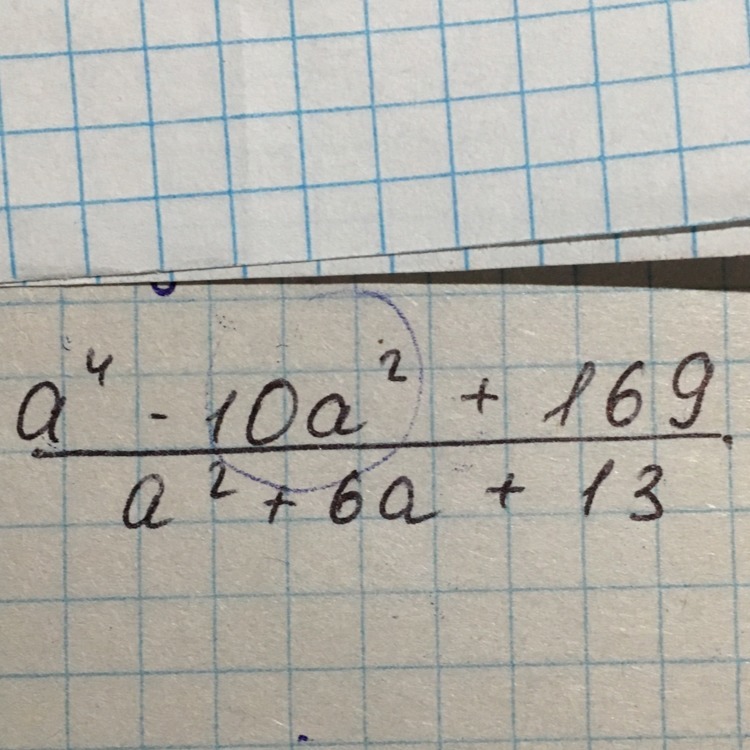 a⁴ - 10a² + 169
a² + 6a + 13